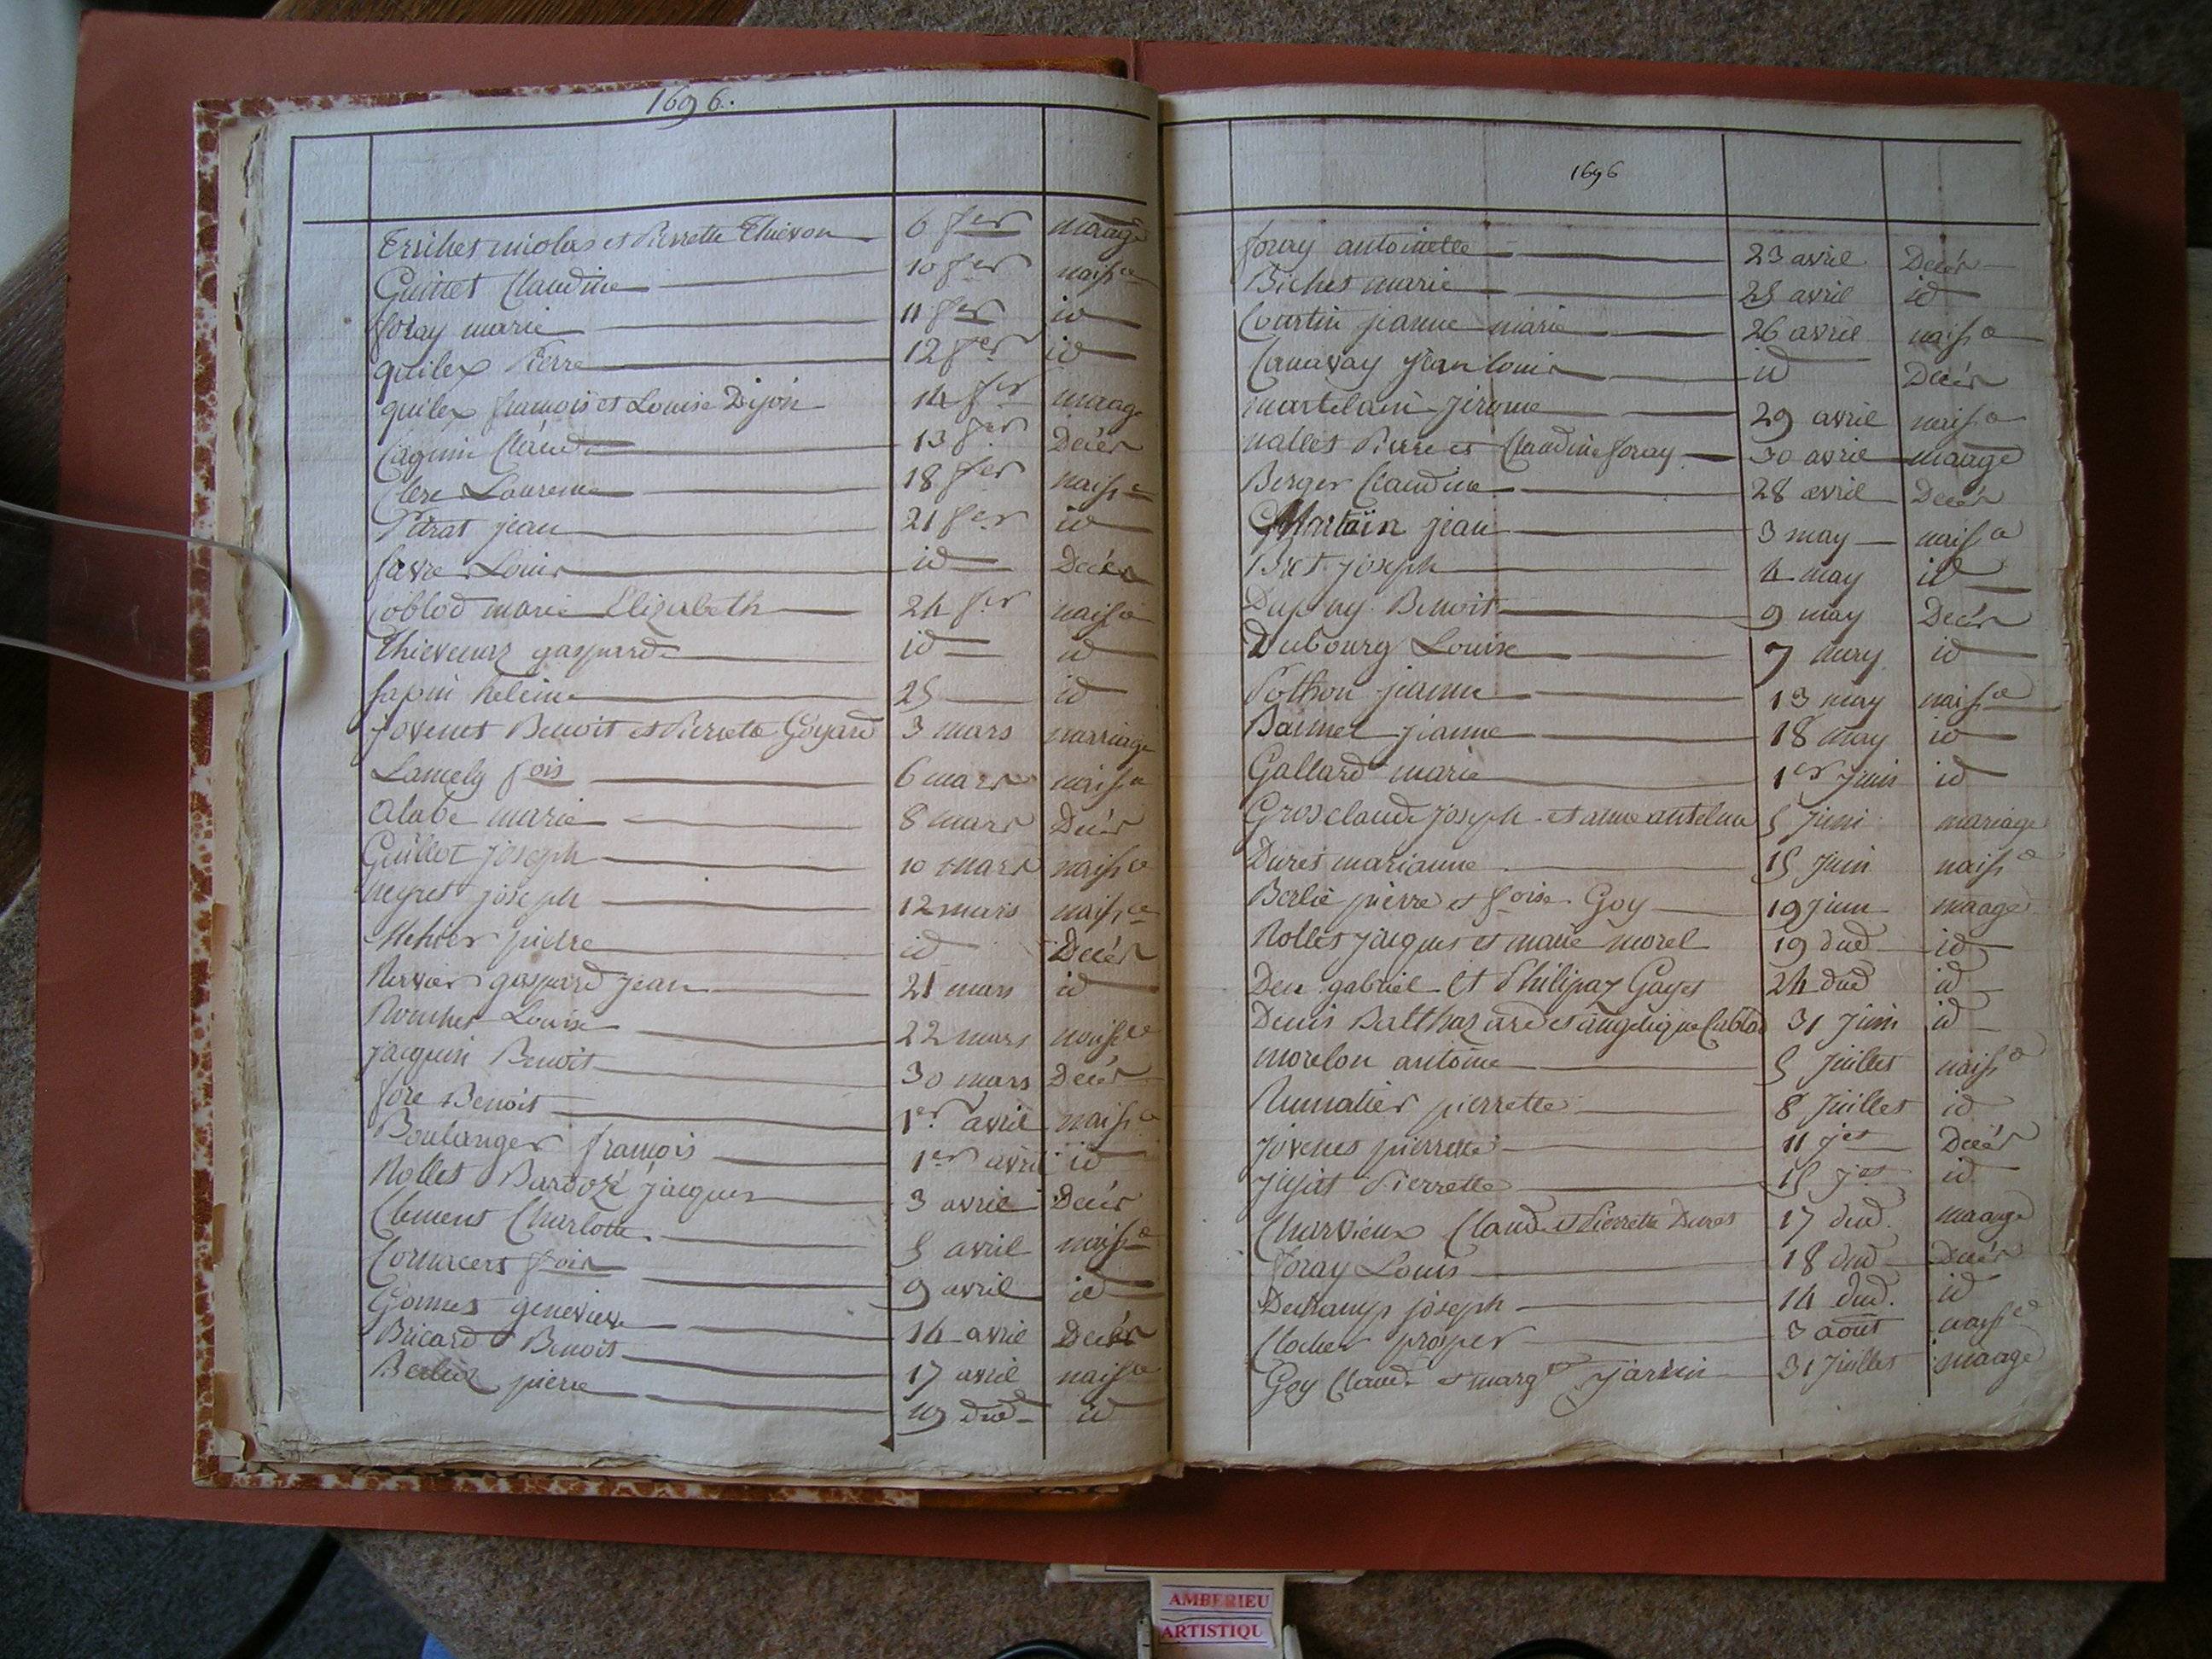 1696.
Trichet nicolas et Pierrette Thievon 6 fer maage
Guittet Claudine 10 fer naisce
foray marie 11 fer id
quilex Pierre 12 fer id
quilex francois et Louise Dijon 14 fer maage
Caquin Claude 13 fer Decés
Clerc Laurence 18 fer naisce
Parat jean 21 fer id
favre Louis id Decés
Coblod marie Elizabeth 24 fer naisce
Thievenaz gasparde id id
fapin heleine 25 id
jovenet Benoit et Pierrette Goyard 3 mars marriage
Lamely fois 6 mars naisce
alabe marie 8 mars Decés
Guillot joseph 10 mars naisce
neyret joseph 12 mars naisce
pierre id Decés
gaspard jean 21 mars id
Louise 22 mars naisce
jacquin Benoit 30 mars Decés
fore Benoit 1er avril naisce
Boulanger francois 1er avril id
Rollet Bardozé jacques 3 avril Decés
Clement Charlotte 5 avril naisce
fois 9 avril id
genevieve 14 avril Decés
Bricard Benoit 17 avril naisce
Berlioz pierre 17 dud id
1696
foray antoinette 23 avril Decés
Bichet marie 25 avril id
Courtin jeanne marie 26 avril naisce
Canavay jean louis id Decés
martelain jerome 29 avril naisce
nallet Pierre et Claudine foray 30 avril maage
Berger Claudine 28 avril Decés
Martain jean 3 may naisce
Bret joseph 4 may id
Dupuy Benoit 9 may Decés
Dubourg Louise 7 may id
Pothon jeanne 13 may naisce
Barmet jeanne 18 may id
Gallard marie 1er juin id
Grosclaude joseph et anne antelme 5 juin mariage
Duret marianne 15 juin naisce
Berlié pierre et foise Goy 19 juin maage
Rollet jacques et marie morel 19 dud id
gabriel et Philipaz Gayet 24 dud id
Denis Balthazard et angelique Cablod 31 juin id
morelon antoine 5 juillet naisce
pierrette 8 juillet id
jovenet pierrette 11 jet Decés
Pierrette 15 jet id
Charvieux Claude et Pierrette Duret 17 dud. maage
foray Louis 18 dud Decés
Dechamp joseph 14 dud. id
Clocher prosper 3 aout naisce
Goy Claude et margte jarrin 31 juillet maage
AMBERIEU
ARTISTIQU